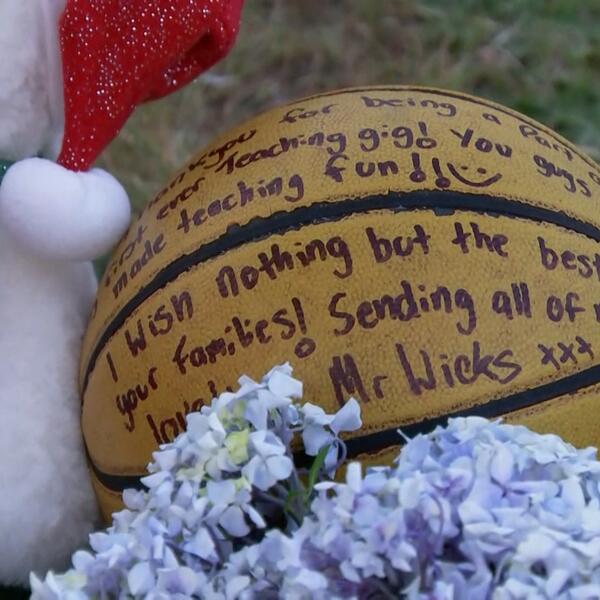 for being a Part
first ever Teaching gig! You guys
made teaching fun!!
I Wish nothing but the best
your families! Sending all of
Mr Wicks xxx